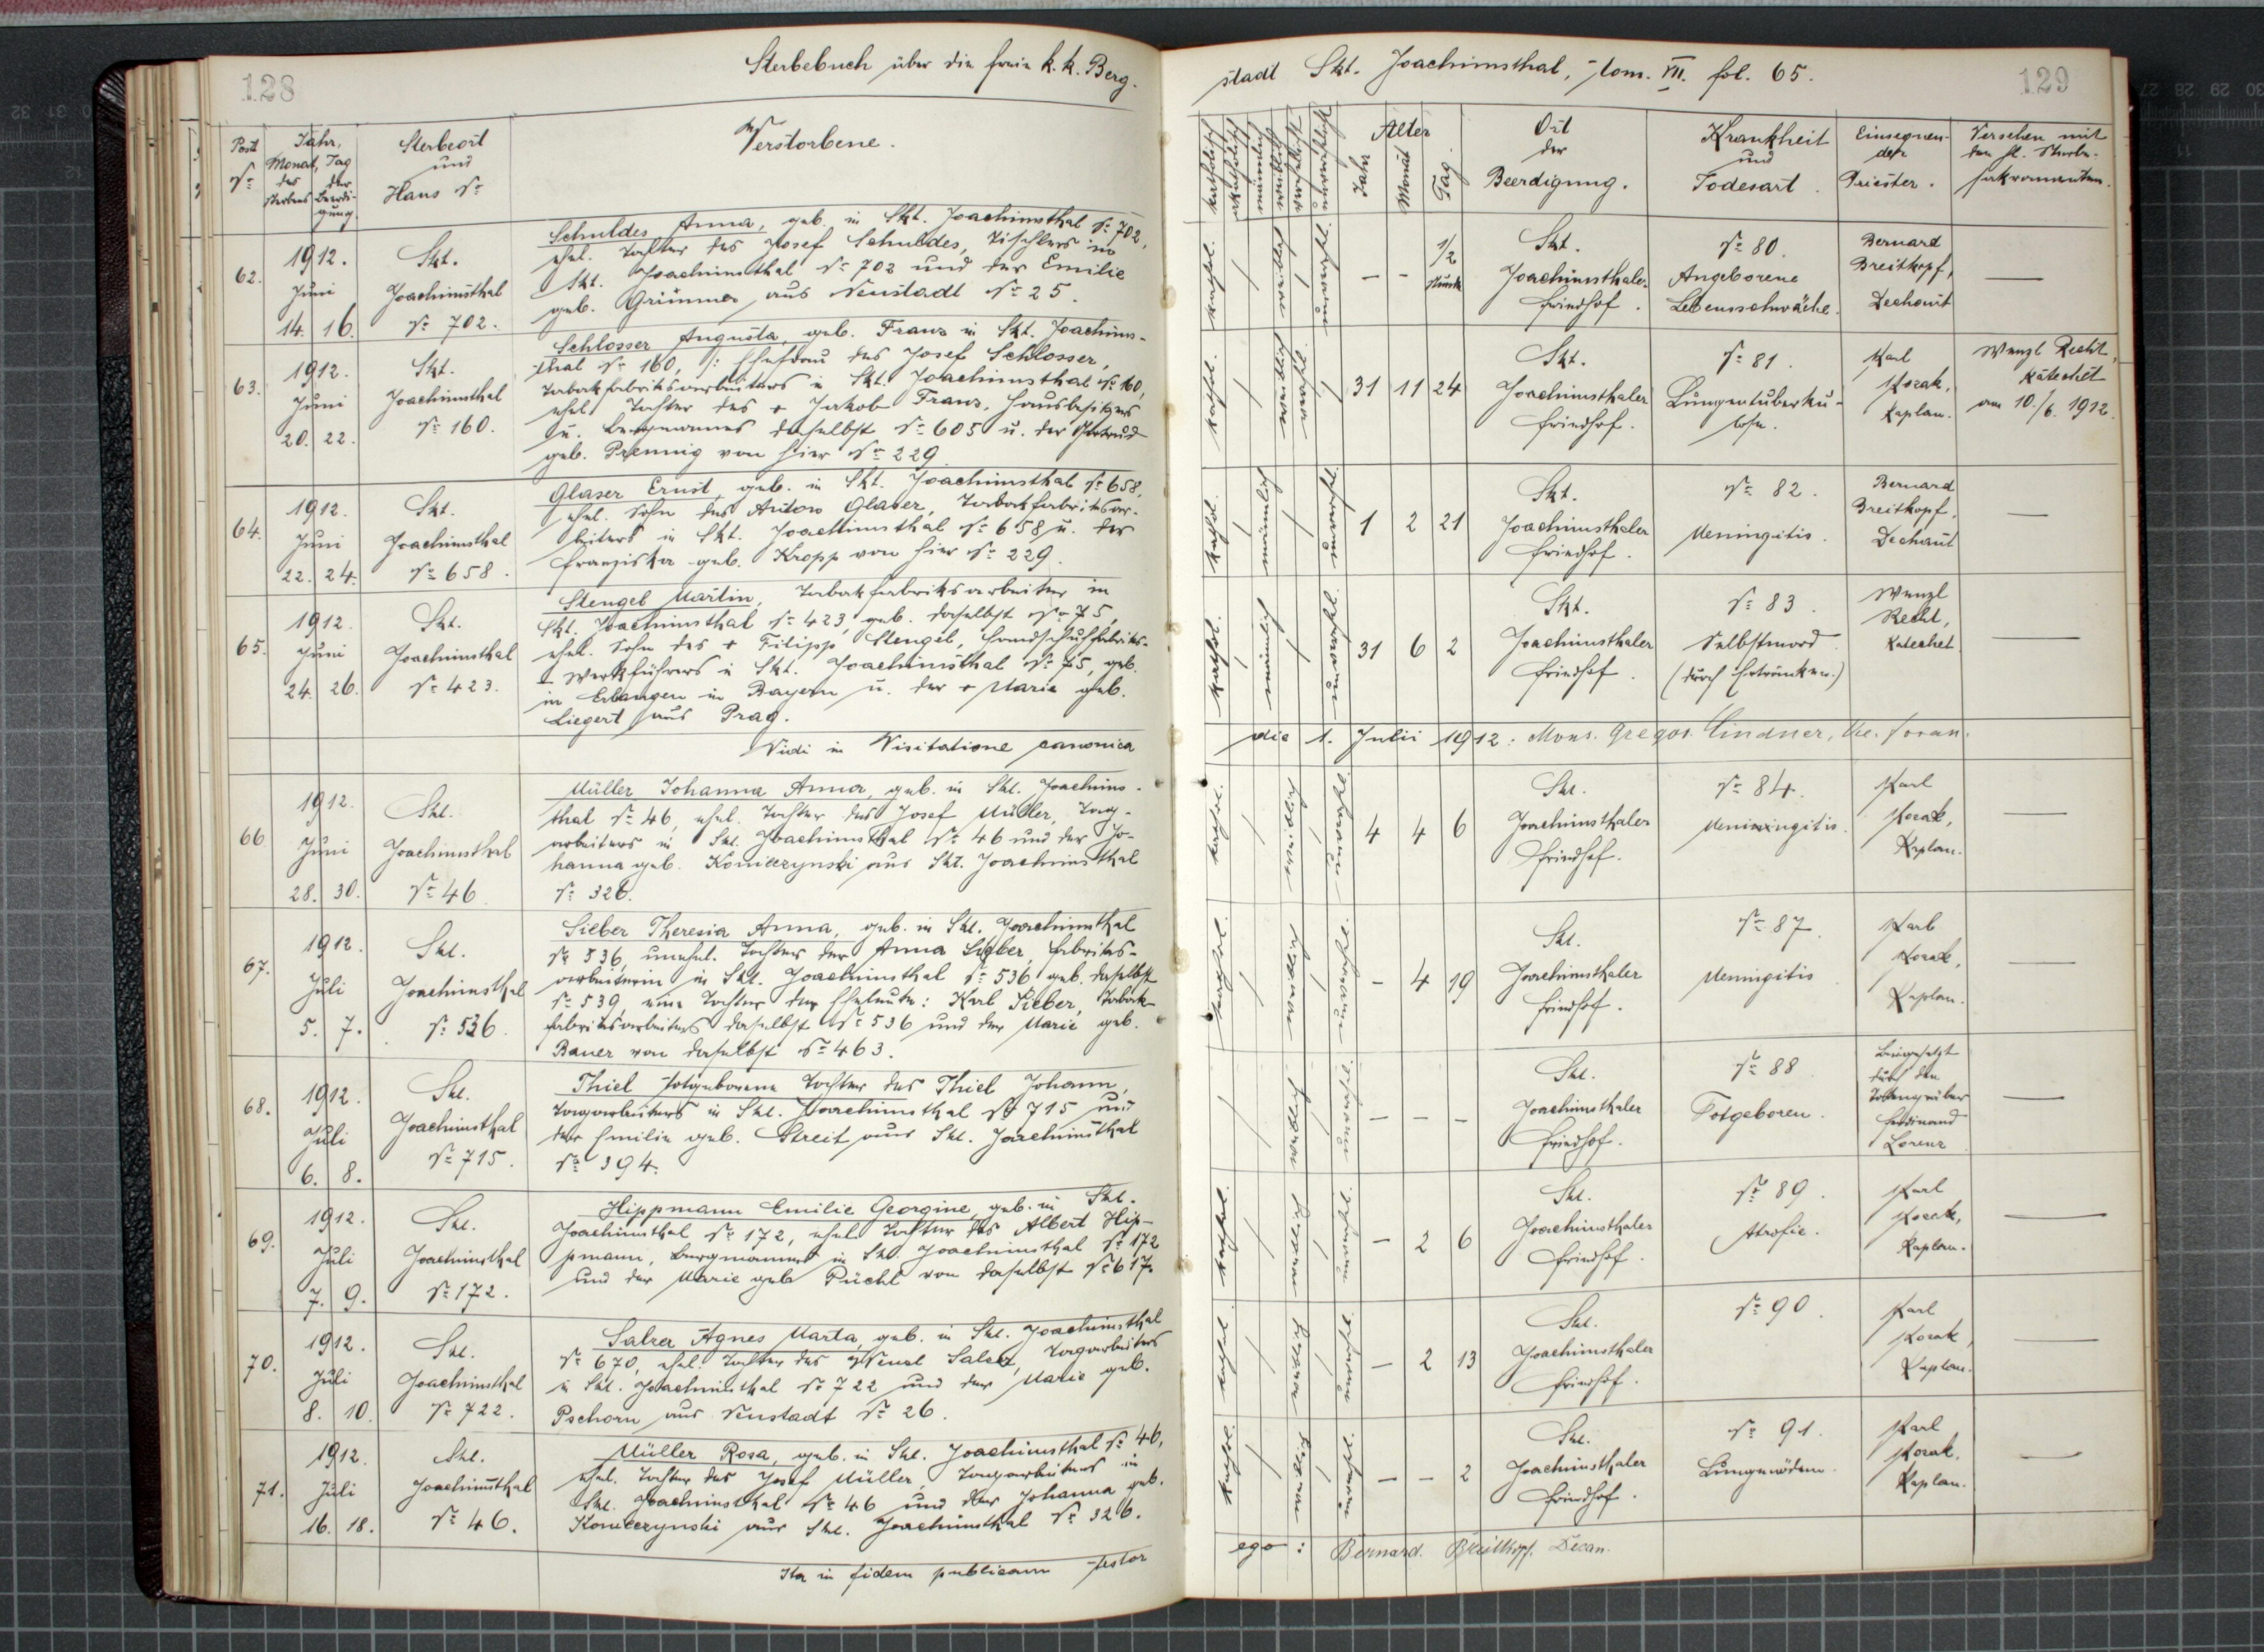 128
Sterbebuch über die freie k. k. Berg-
Post
No
Jahr,
Monat, Tag
des der
Sterbens Beerdi-
gung.
Sterbeort
und
Haus No
Verstorbene.
62.
1912.
Juni
14. 16.
Skt.
Joachimsthal
No 702.
Schuldes Anna, geb. in Skt. Joachimsthal No 702,
ehel. Tochter des Josef Schuldes, Tischlers in
Skt. Joachimsthal No 702 und der Emilie
geb. Grimmer aus Neustadt No 25.
63.
1912.
Juni
20. 22.
Skt.
Joachimsthal
No 160.
Schlosser Augusta, geb. Franz in Skt. Joachims-
thal No 160, /: Ehefrau des Josef Schlosser,
Tabakfabriksarbeiters in Skt. Joachimsthal No 160,
ehel. Tochter des + Jakob Franz, Hausbesitzers
u. Bergmannes daselbst No 605 u. der Gertrud
geb. Prennig von hier No 229.
64.
1912.
Juni
22. 24.
Skt.
Joachimsthal
No 658.
Glaser Ernst, geb. in Skt. Joachimsthal No 658,
ehel. Sohn des Anton Glaser, Tabakfabriksar-
beiters in Skt. Joachimsthal No 658 u. der
Franziska geb. Kropp von hier No 229.
65.
1912.
Juni
24. 26.
Skt.
Joachimsthal
No 423.
Stengel Martin, Tabakfabriksarbeiter in
Skt. Joachimsthal No 423, geb. daselbst No 75,
ehel. Sohn des + Filipp Stengel, Handschuhfabriks-
Werkführers in Skt. Joachimsthal No 75, geb.
in Erlangen in Bayern u. der + Marie geb.
Liegert aus Prag.
Vidi in Visitatione canonica
66
1912.
Juni
28. 30.
Skt.
Joachimsthal
No 46
Müller Johanna Anna, geb. in Skt. Joachims-
thal No 46, ehel. Tochter des Josef Müller, Tag-
arbeiters in Skt. Joachimsthal No 46 und der Jo-
hanna geb. Koniczynski aus Skt. Joachimsthal
No 326.
67.
1912.
Juli
5. 7.
Skt.
Joachimsthal
No 536.
Sieber Theresia Anna, geb. in Skt. Joachimsthal
No 536, unehel. Tochter der Anna Sieber, Fabriks-
arbeiterin in Skt. Joachimsthal No 536 geb. daselbst
No 539, eine Tochter der Eheleute: Karl Sieber, Tabak-
fabriksarbeiters daselbst No 536 und der Marie geb.
Bauer von daselbst No 463.
68.
1912.
Juli
6. 8.
Skt.
Joachimsthal
No 715.
Thiel totgeborene Tochter des Thiel Johann,
Tagarbeiters in Skt. Joachimsthal No 715 und
der Emilie geb. Streit aus Skt. Joachimsthal
No 394.
69.
1912.
Juli
7. 9.
Skt.
Joachimsthal
No 172.
Hippmann Emilie Georgine, geb. in Skt.
Joachimsthal No 172, ehel. Tochter des Albert Hip-
pmann, Bergmannes in Skt. Joachimsthal No 172
und der Marie geb. Püchl von daselbst No 617.
70.
1912.
Juli
8. 10.
Skt.
Joachimsthal
No 722.
Salzer Agnes Marta, geb. in Skt. Joachimsthal
No 670, ehel. Tochter des Wenzl Salzer, Tagarbeiters
in Skt. Joachimsthal No 722 und der Marie geb.
Pschorn aus Neustadt No 26.
71.
1912.
Juli
16. 18.
Skt.
Joachimsthal
No 46.
Müller Rosa, geb. in Skt. Joachimsthal No 46,
ehel. Tochter des Josef Müller, Tagarbeiters in
Skt. Joachimsthal No 46 und der Johanna geb.
Koniczynski aus Skt. Joachimsthal No 326.
Ita in fidem publicam testor
stadt Skt. Joachimsthal, tom. VII. fol. 65.
129
katholisch
akatholisch
männlich
weiblich
verehelicht
unverehelicht
Alter
Jahr
Monat
Tag
Ort
der
Beerdigung.
Krankheit
und
Todesart.
Einsegnen-
der
Priester.
Versehen mit
den hl. Sterbe-
sakramenten.
kathol. / weiblich / unverehl.
— — 1/2 Stunde
Skt.
Joachimsthaler
Friedhof.
No 80.
Angeborene
Lebensschwäche.
Bernard
Breitkopf,
Dechant
—
kathol. / weiblich verehl. /
31 11 24
Skt.
Joachimsthaler
Friedhof.
No 81.
Lungentuberku-
lose.
Karl
Kozak,
Kaplan.
Wenzl Recht,
Katechet
am 10./6. 1912.
kathol. / männlich / unverehl.
1 2 21
Skt.
Joachimsthaler
Friedhof.
No 82.
Meningitis.
Bernard
Breitkopf,
Dechant
—
kathol. / männlich / unverehl.
31 6 2
Skt.
Joachimsthaler
Friedhof.
No 83.
Selbstmord
(durch Ertränken.)
Wenzl
Recht,
Katechet
—
die 1. Julii 1912: Mons. Gregor Lindner, Vic. foran.
kathol. / weiblich / unverehl.
4 4 6
Skt.
Joachimsthaler
Friedhof.
No 84.
Meningitis.
Karl
Kozak,
Kaplan.
—
kathol. / weiblich / unverehl.
— 4 19
Skt.
Joachimsthaler
Friedhof.
No 87.
Meningitis
Karl
Kozak,
Kaplan.
—
/ weiblich / unverehl.
— — —
Skt.
Joachimsthaler
Friedhof.
No 88
Totgeboren.
Beigesetzt
durch den
Totengräber
Ferdinand
Lorenz
—
kathol. / weiblich / unverehl.
— 2 6
Skt.
Joachimsthaler
Friedhof.
No 89.
Atrofie.
Karl
Kozak,
Kaplan.
—
kathol. / weiblich / unverehl.
— 2 13
Skt.
Joachimsthaler
Friedhof.
No 90.
Karl
Kozak,
Kaplan.
—
kathol. / weiblich / unverehl.
— — 2
Skt.
Joachimsthaler
Friedhof.
No 91.
Lungenödem.
Karl
Kozak,
Kaplan.
—
ego: Bernard. Breitkopf. Decan.